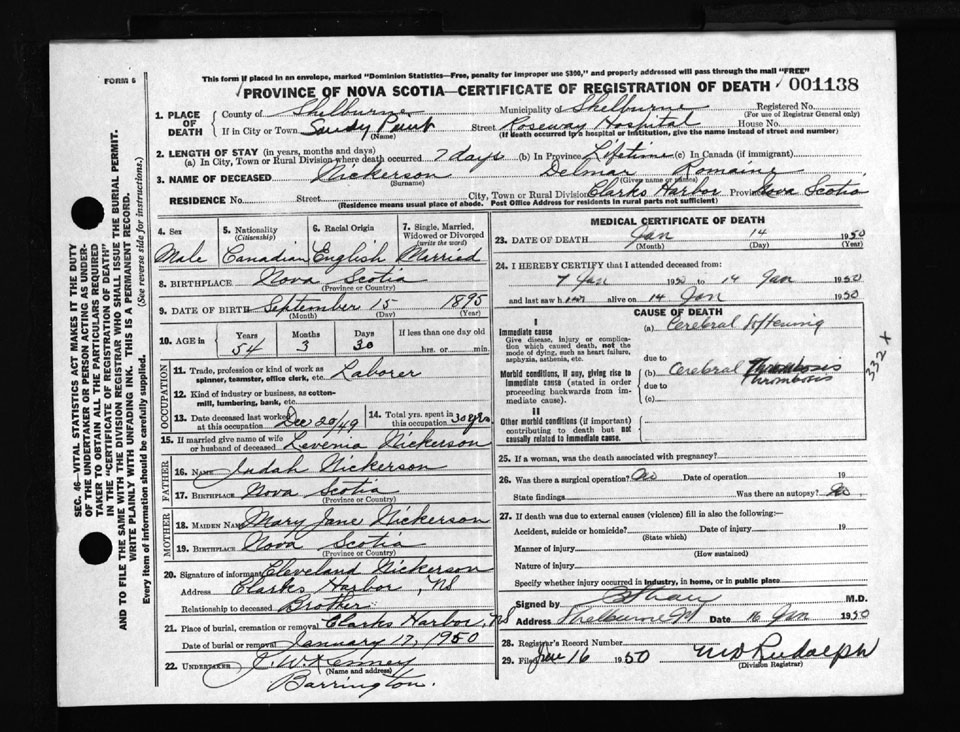 This form if placed in an envelope, marked "Dominion Statistics—Free, penalty for improper use $300," and properly addressed will pass through the mail "FREE"
FORM 6
PROVINCE OF NOVA SCOTIA—CERTIFICATE OF REGISTRATION OF DEATH
001138
1. PLACE OF DEATH
County of Shelburne Municipality of Shelburne Registered No.
(For use of Registrar General only)
If in City or Town Sandy Point Street Roseway Hospital House No.
(Name) (If death occurred in a hospital or institution, give the name instead of street and number)
2. LENGTH OF STAY (in years, months and days)
(a) In City, Town or Rural Division where death occurred 7 days (b) In Province Lifetime (c) In Canada (if immigrant)
3. NAME OF DECEASED Nickerson Delmar Romaine
(Surname) (Given name or names)
RESIDENCE No. Street City, Town or Rural Division Clarks Harbor Province Nova Scotia
(Residence means usual place of abode. Post Office Address for residents in rural parts not sufficient)
4. Sex Male
5. Nationality (Citizenship) Canadian
6. Racial Origin English
7. Single, Married, Widowed or Divorced (write the word) Married
8. BIRTHPLACE Nova Scotia
(Province or Country)
9. DATE OF BIRTH September 15 1895
(Month) (Day) (Year)
10. AGE in Years Months Days If less than one day old
54 3 30 hrs. or min.
OCCUPATION
11. Trade, profession or kind of work as spinner, teamster, office clerk, etc. Laborer
12. Kind of industry or business, as cotton-mill, lumbering, bank, etc.
13. Date deceased last worked at this occupation Dec 20/49
14. Total yrs. spent in this occupation 30 yrs
15. If married give name of wife or husband of deceased Levenia Nickerson
FATHER
16. NAME Judah Nickerson
17. BIRTHPLACE Nova Scotia
(Province or Country)
MOTHER
18. MAIDEN NAME Mary Jane Nickerson
19. BIRTHPLACE Nova Scotia
(Province or Country)
20. Signature of informant Cleveland Nickerson
Address Clarks Harbor, NS
Relationship to deceased Brother
21. Place of burial, cremation or removal Clarks Harbor, NS
Date of burial or removal January 17, 1950
22. UNDERTAKER J. W. Kenney
(Name and address)
Barrington.
MEDICAL CERTIFICATE OF DEATH
23. DATE OF DEATH Jan 14 1950
(Month) (Day) (Year)
24. I HEREBY CERTIFY that I attended deceased from:
7 Jan 1950 to 14 Jan 1950
and last saw him alive on 14 Jan 1950
CAUSE OF DEATH
I
Immediate cause
Give disease, injury or complication which caused death, not the mode of dying, such as heart failure, asphyxia, asthenia, etc.
(a) Cerebral softening
due to
Morbid conditions, if any, giving rise to immediate cause (stated in order proceeding backwards from immediate cause).
(b) Cerebral Thrombosis
Thrombosis
due to
(c)
332 x
II
Other morbid conditions (if important) contributing to death but not causally related to immediate cause.
25. If a woman, was the death associated with pregnancy?
26. Was there a surgical operation? No Date of operation 19
State findings Was there an autopsy? No
27. If death was due to external causes (violence) fill in also the following:
Accident, suicide or homicide? Date of injury 19
(State which)
Manner of injury
(How sustained)
Nature of injury
Specify whether injury occurred in industry, in home, or in public place
Signed by M.D.
Address Shelburne NS Date 16 Jan 1950
28. Registrar's Record Number
29. Filed Jan 16 1950 Rudolph
(Division Registrar)
SEC. 46—VITAL STATISTICS ACT MAKES IT THE DUTY
OF THE UNDERTAKER OR PERSON ACTING AS UNDER-
TAKER TO OBTAIN ALL THE PARTICULARS REQUIRED
IN THE "CERTIFICATE OF REGISTRATION OF DEATH"
AND TO FILE THE SAME WITH THE DIVISION REGISTRAR WHO SHALL ISSUE THE BURIAL PERMIT.
WRITE PLAINLY WITH UNFADING INK. THIS IS A PERMANENT RECORD.
Every item of information should be carefully supplied. (See reverse side for instructions.)